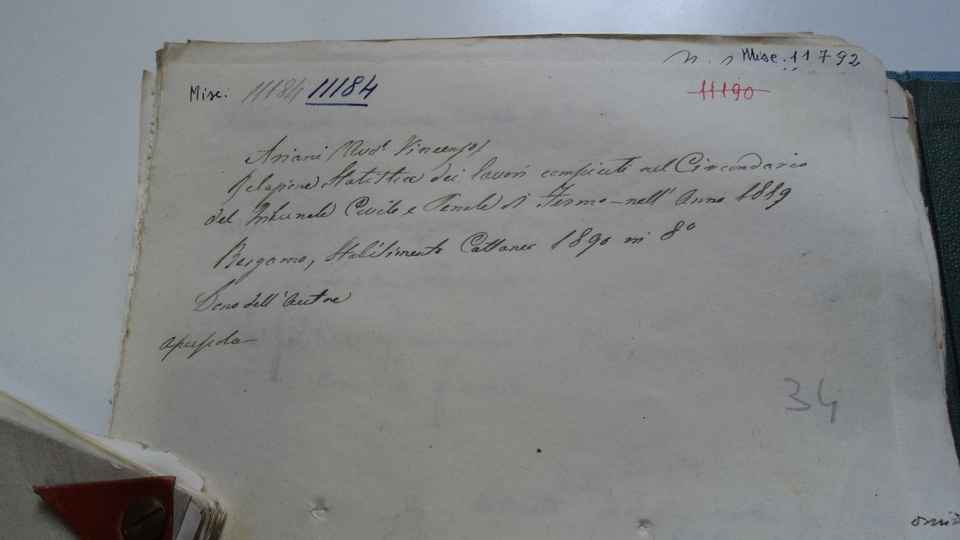 n. s Misc. 11792
Misc. 11184 11184
11190
Ariani Mod.º Vincenzo
Relazione Statistica dei lavori compiuti nel Circondario
del Tribunale Civile e Penale di Fermo nell'Anno 1889
Bergamo, Stabilimento Cattaneo 1890 in 8º
Dono dell'Autore
34